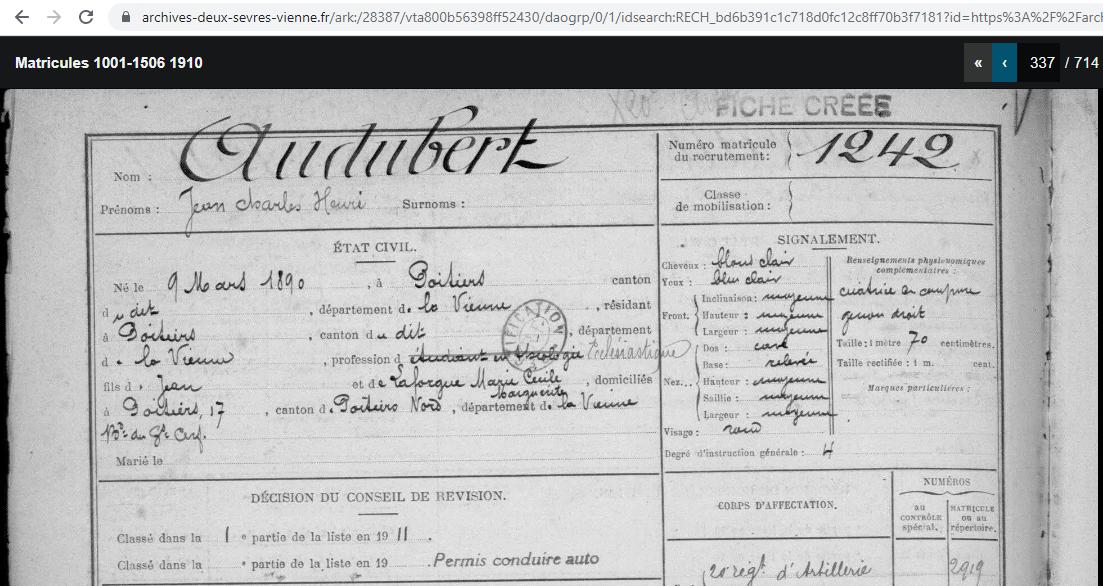 archives-deux-sevres-vienne.fr/ark:/28387/vta800b56398ff52430/daogrp/0/1/idsearch:RECH_bd6b391c1c718d0fc12c8ff70b3f7181?id=https%3A%2F%2Farch
Matricules 1001-1506 1910
« ‹ 337 / 714
FICHE CRÉÉE
Nom : Audubert
Prénoms : Jean Charles Henri Surnoms :
Numéro matricule
du recrutement : 1242
Classe
de mobilisation :
ÉTAT CIVIL.
Né le 9 Mars 1890, à Poitiers canton
du dit, département de la Vienne, résidant
à Poitiers, canton du dit, département
de la Vienne, profession d'étudiant en théologie Ecclésiastique
fils de Jean et de Laforgue Marie Cécile, domiciliés
Marguerite
à Poitiers, 17, canton de Poitiers Nord, département de la Vienne
Marié le
SIGNALEMENT.
Cheveux : blond clair
Yeux : bleu clair
Front.
Inclinaison : moyenne
Hauteur : moyenne
Largeur : moyenne
Nez...
Dos : cavé
Base : relevée
Hauteur : moyenne
Saillie : moyenne
Largeur : moyenne
Visage : rond
Renseignements physionomiques
complémentaires :
cicatrice de coupure
genou droit
Taille : 1 mètre 70 centimètres.
Taille rectifiée : 1 m. cent.
Marques particulières :
Degré d'instruction générale : 4
DÉCISION DU CONSEIL DE REVISION.
Classé dans la 1e partie de la liste en 1911.
Classé dans la e partie de la liste en 19 Permis conduire auto
CORPS D'AFFECTATION.
NUMÉROS
au
CONTRÔLE
spécial.
MATRICULE
ou au
répertoire.
20 régt d'Artillerie 2919